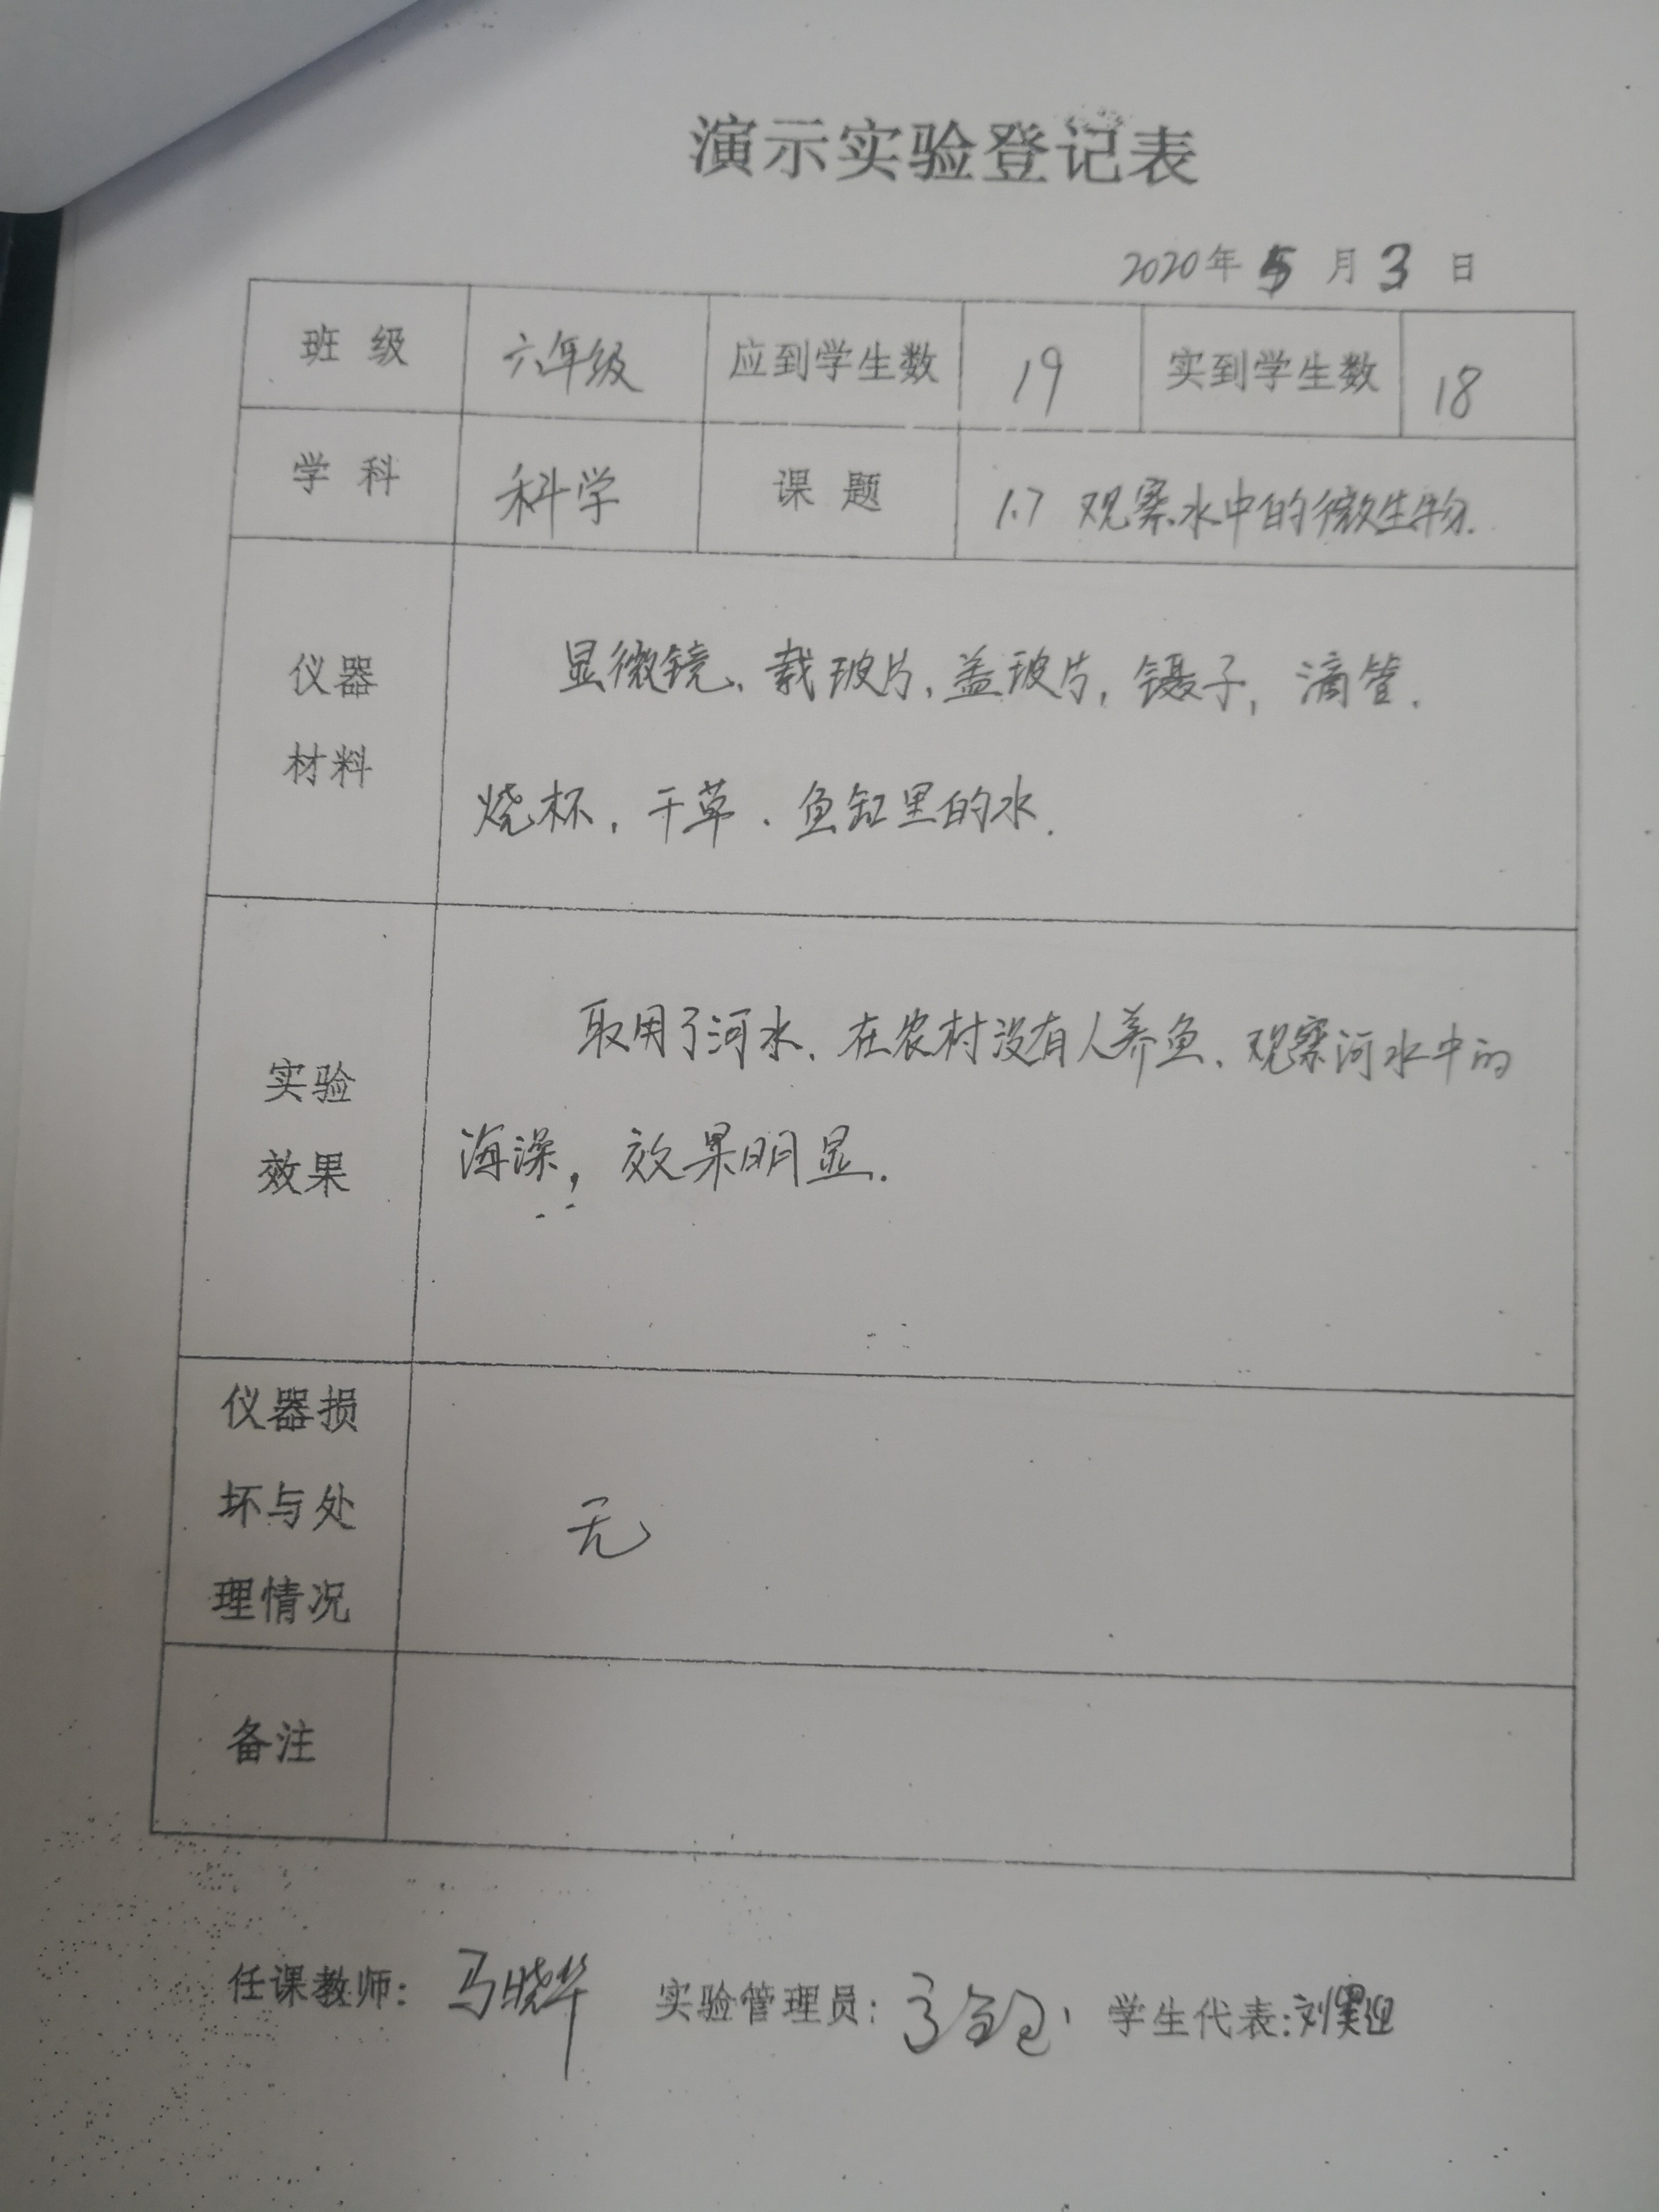 演示实验登记表
2020年5月3日
班级 六年级 应到学生数 19 实到学生数 18
学科 科学 课题 1.7 观察水中的微生物.
仪器
材料
显微镜、载玻片、盖玻片，镊子，滴管.
烧杯，干草、鱼缸里的水.
实验
效果
取用了河水、在农村没有人养鱼、观察河水中的
海澡，效果明显.
仪器损
坏与处
理情况
无
备注
任课教师：马晓华 实验管理员： 学生代表:刘